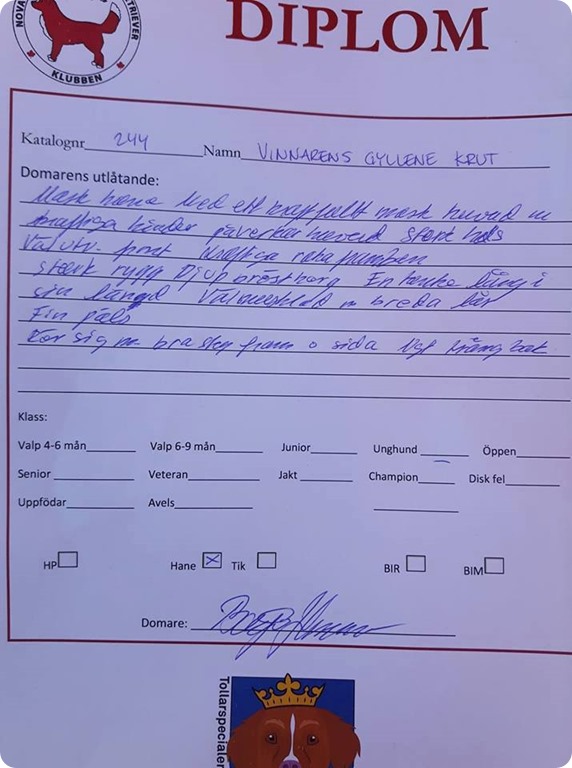 NOVA
RETRIEVER
KLUBBEN
DIPLOM
Katalognr 244 Namn VINNARENS GYLLENE KRUT
Domarens utlåtande:
Mask hane Med ett kraftfullt mask huvud m
kraftiga kinder påverkar huvud stark hals
Välutv. front kraftiga
stark rygg Djup bröstkorg En tanke lång i
sin längd Välmusklad m breda lår
Fin päls
Rör sig m bra steg fram o sida trång bak
Klass:
Valp 4-6 mån Valp 6-9 mån Junior Unghund Öppen
Senior Veteran Jakt Champion Disk fel
Uppfödar Avels
HP Hane Tik BIR BIM
Domare:
Tollarspecialen